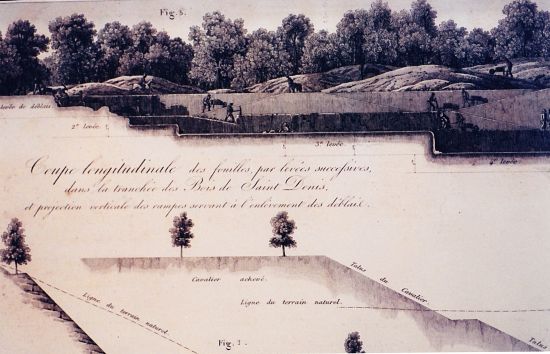 Fig. 8.
levée de déblais
2e levée.
3e levée.
4e levée.
Coupe longitudinale des fouilles, par levées successives,
dans la tranchée des Bois de Saint Denis,
et projection verticale des rampes servant à l'enlèvement des déblais.
Cavalier achevé.
Talus du Cavalier.
Ligne du terrain naturel.
Ligne du terrain naturel.